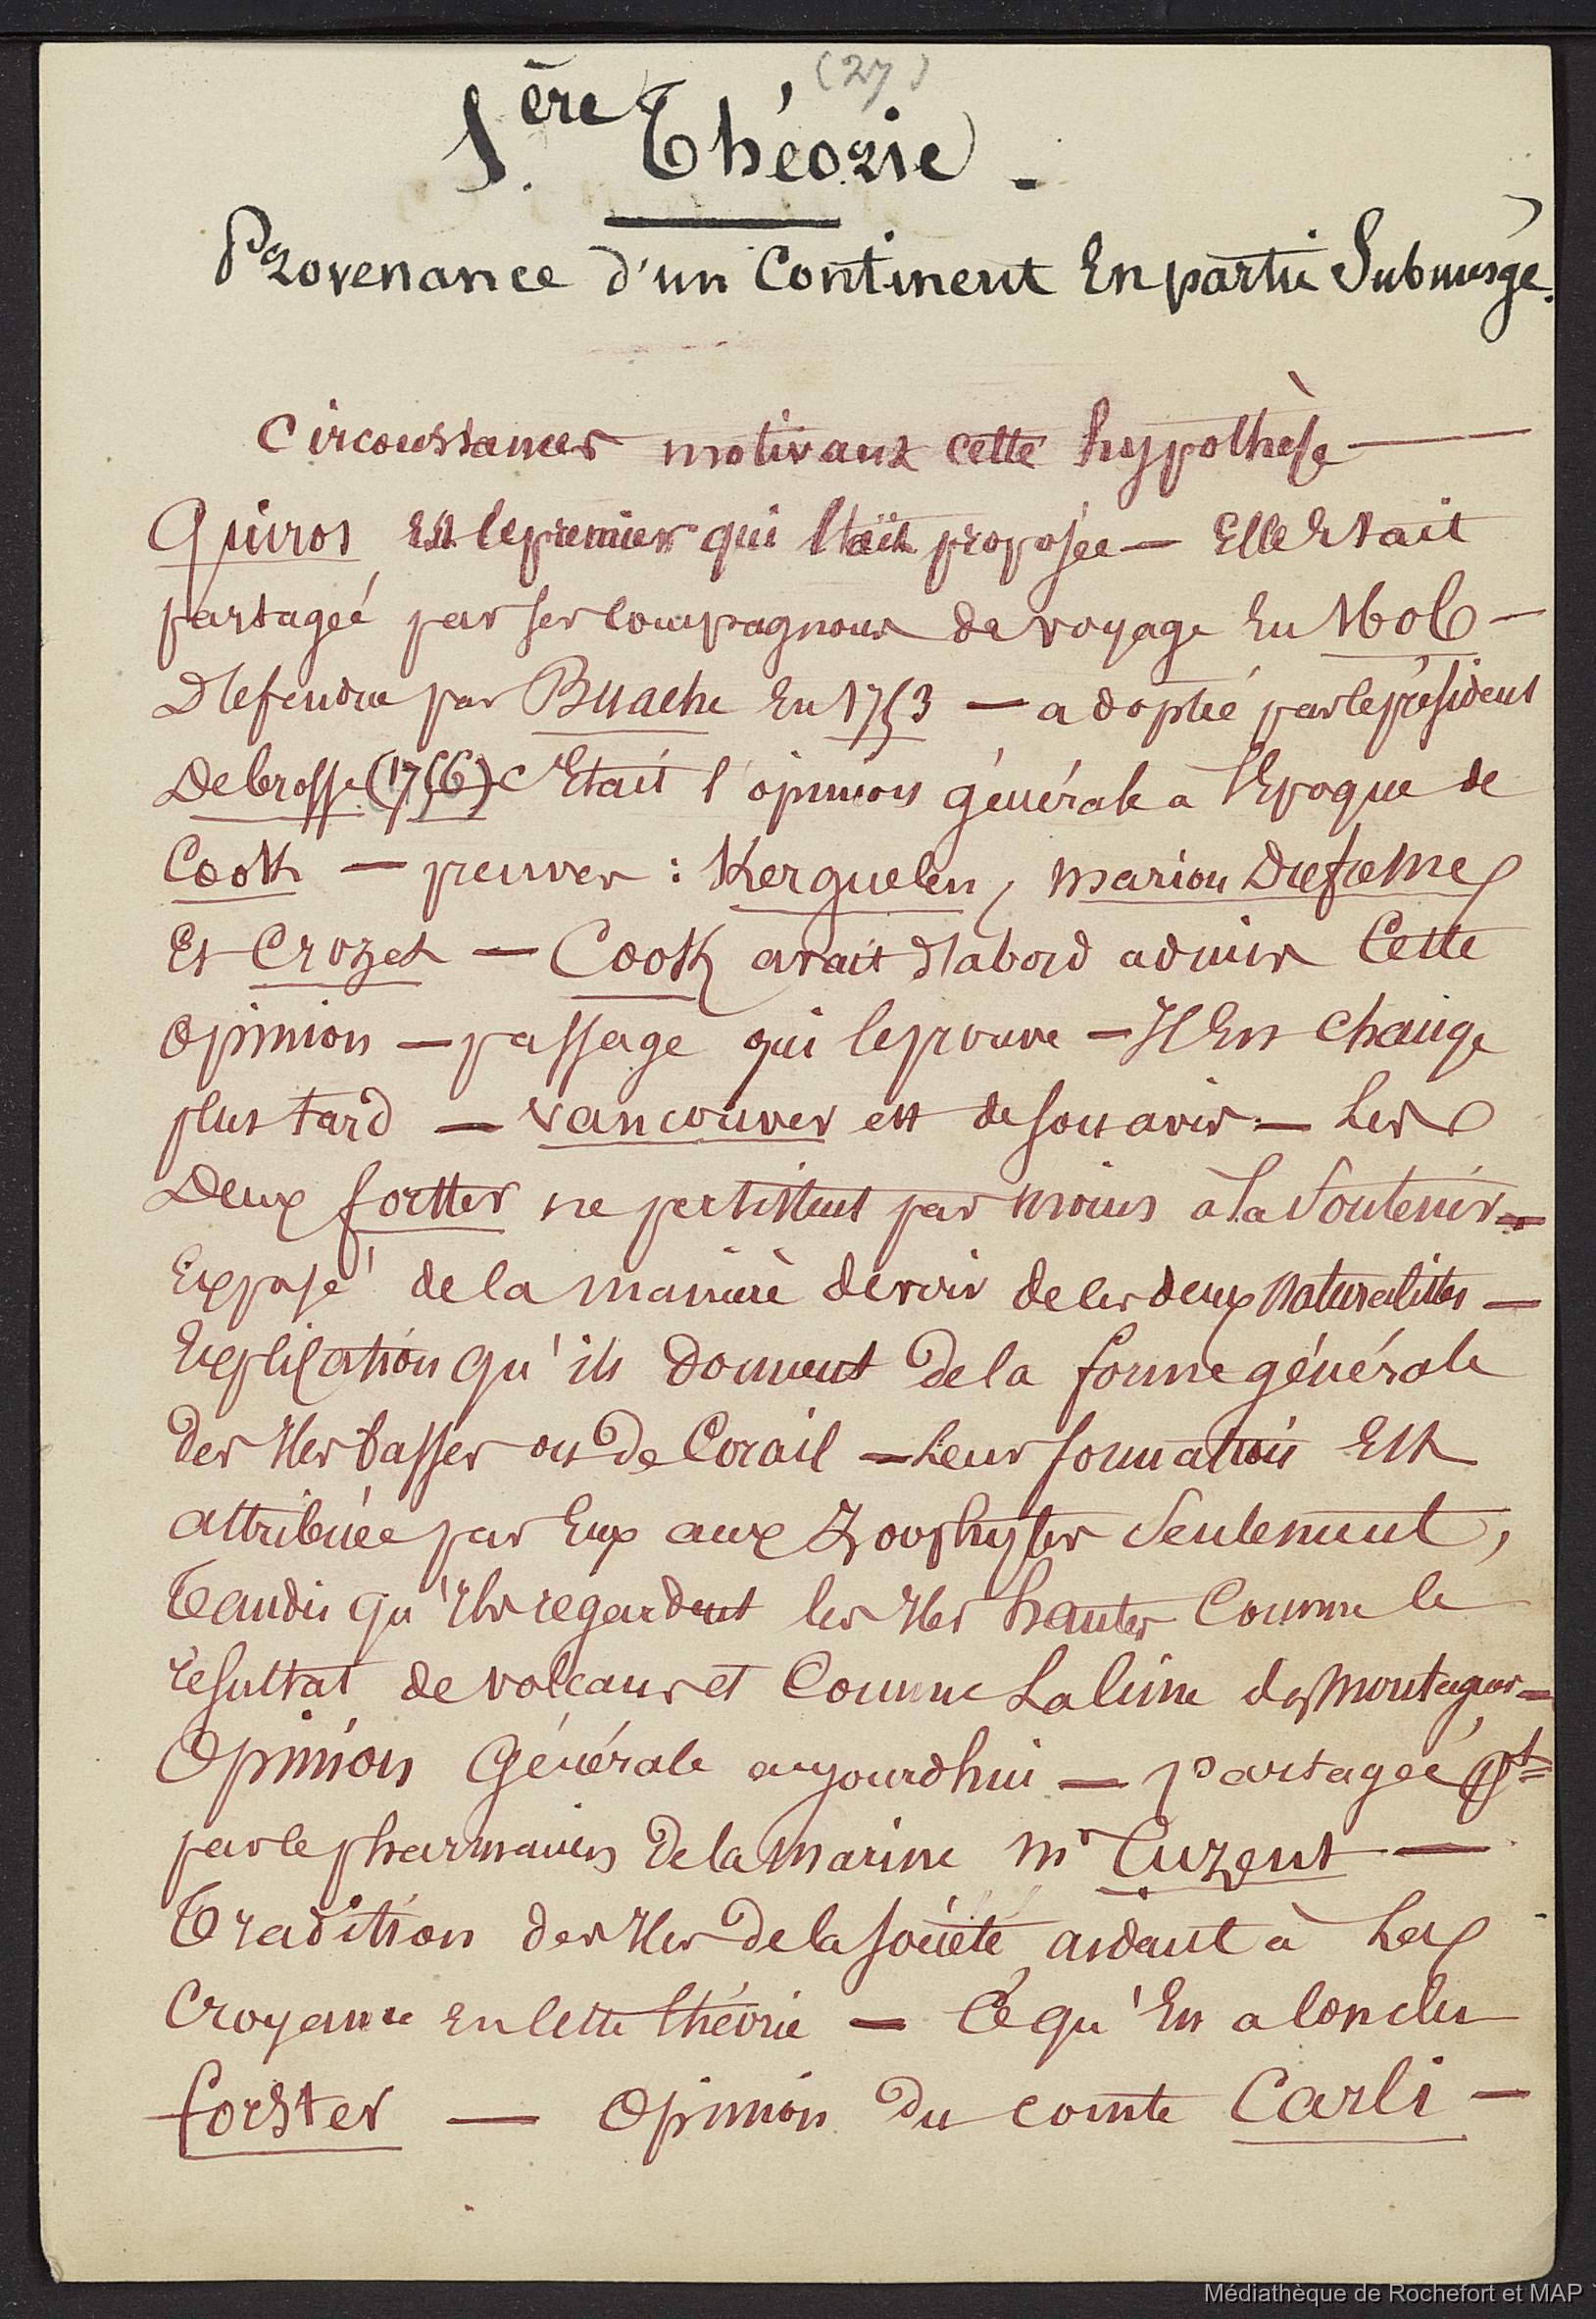 (27)
1.ère Théorie -
Provenance d'un Continent En partie Submergé.
Circonstances motivant cette hypothèse —
Quiros Est le premier qui l'ait proposée — Elle Etait
partagée par ses Compagnons de voyage En 1606 —
Défendue par Buache En 1753 — adoptée par le président
Debrosse (1756) C'Etait l'opinion générale a l'Epoque de
Cook — preuves : Kerguelen, Marion Dufresne
Et Crozet — Cook avait d'abord admis Cette
Opinion — passage qui le prouve — Il En Change
plus tard — Vancouver est de son avis — Les
Deux forster ne persistent pas moins à la Soutenir —
Exposé de la manière de voir de les deux Naturalistes —
Explication qu'ils donnent De la forme générale
Des Iles basses ou De Corail — Leur formation Est
attribuée par Eux aux Zoophytes Seulement,
Tandis qu'Ils regardent les Iles hautes Comme le
résultat de volcans et Comme La Cime des Montagnes —
Opinion Générale aujourdhui — partagée
par le pharmacien De la Marine Mr Cuzent —
Tradition des Iles De la Société aidant à La
Croyance En Cette théorie — Ce qu'En a Conclu
forster — Opinion Du comte Carli —
Médiathèque de Rochefort et MAP